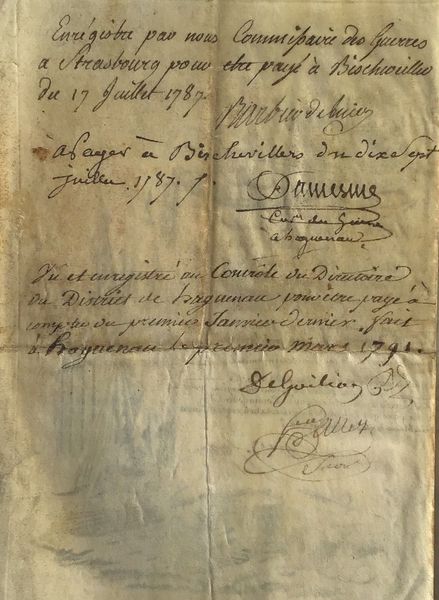 Enrégistré par nous Commissaire des Guerres
a Strasbourg pour etre payé à Bischwiller
du 17 Juillet 1787.
a Payer à Bischevillers du dix Sept
Juillet 1787.
Damesme
à haguenau
Vu et enregistré au Contrôle du Directoire
du District de haguenau pour être payé à
compter du premier Janvier dernier. fait
à haguenau le premier mars 1791.